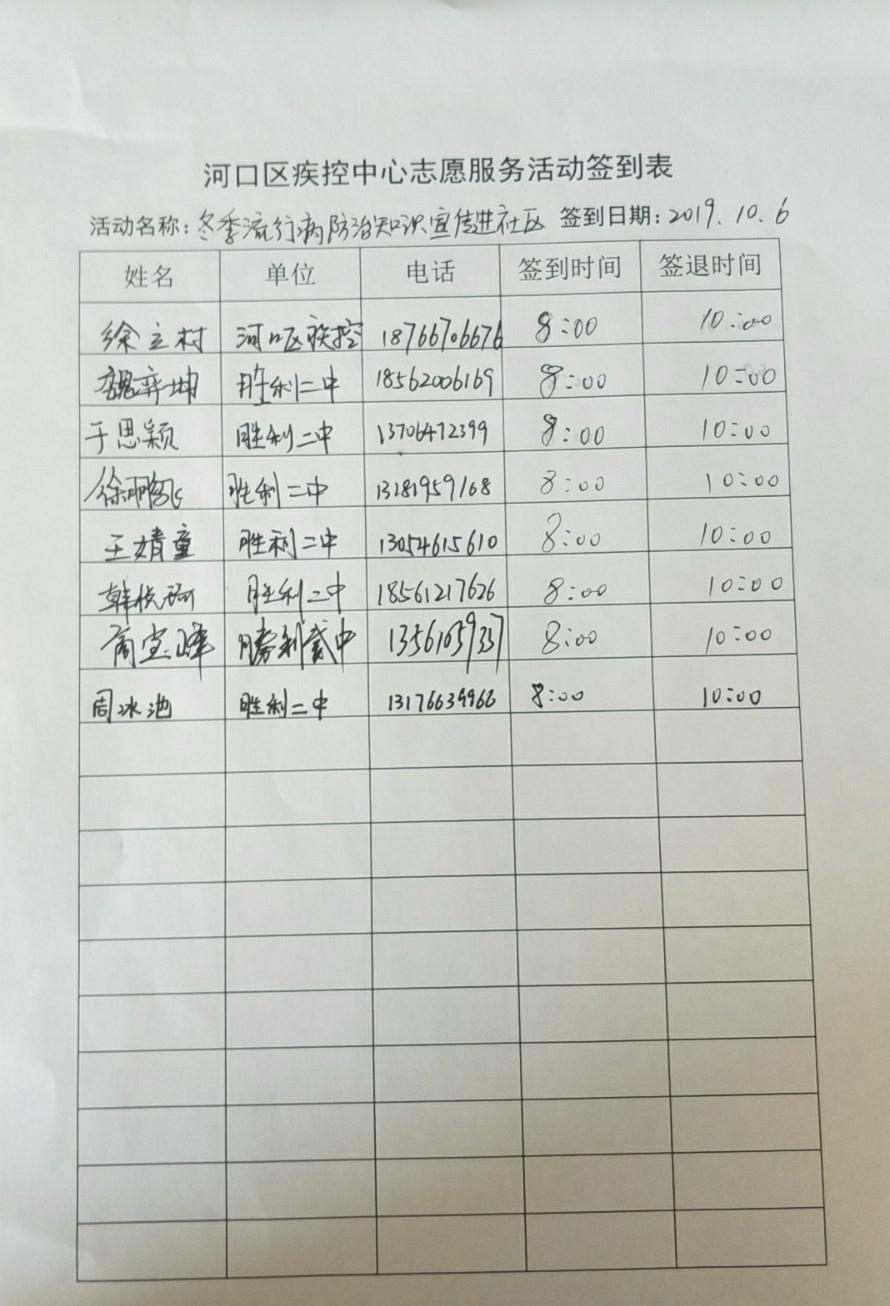 河口区疾控中心志愿服务活动签到表
活动名称:冬季流行病防治知识宣传进社区 签到日期:2019.10.6
姓名 单位 电话 签到时间 签退时间
徐立村 河口区疾控 18766706676 8:00 10:00
魏弈坤 胜利二中 18562006169 8:00 10:00
于思颖 胜利二中 13706472399 8:00 10:00
徐鹏飞 胜利二中 13181959168 8:00 10:00
王婧童 胜利二中 13054615610 8:00 10:00
韩悦珂 胜利二中 18561217626 8:00 10:00
商宝峰 勝利贰中 13561059337 8:00 10:00
周冰池 胜利二中 13176639966 8:00 10:00